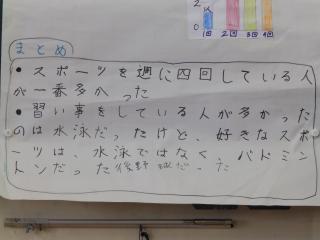 2人
0
1回 2回 3回 4回
まとめ
●スポーツを週に四回している人
が一番多かった
●習い事をしている人が多かった
のは水泳だったけど、好きなスポ
ーツは、水泳ではなく バドミン
トンだった